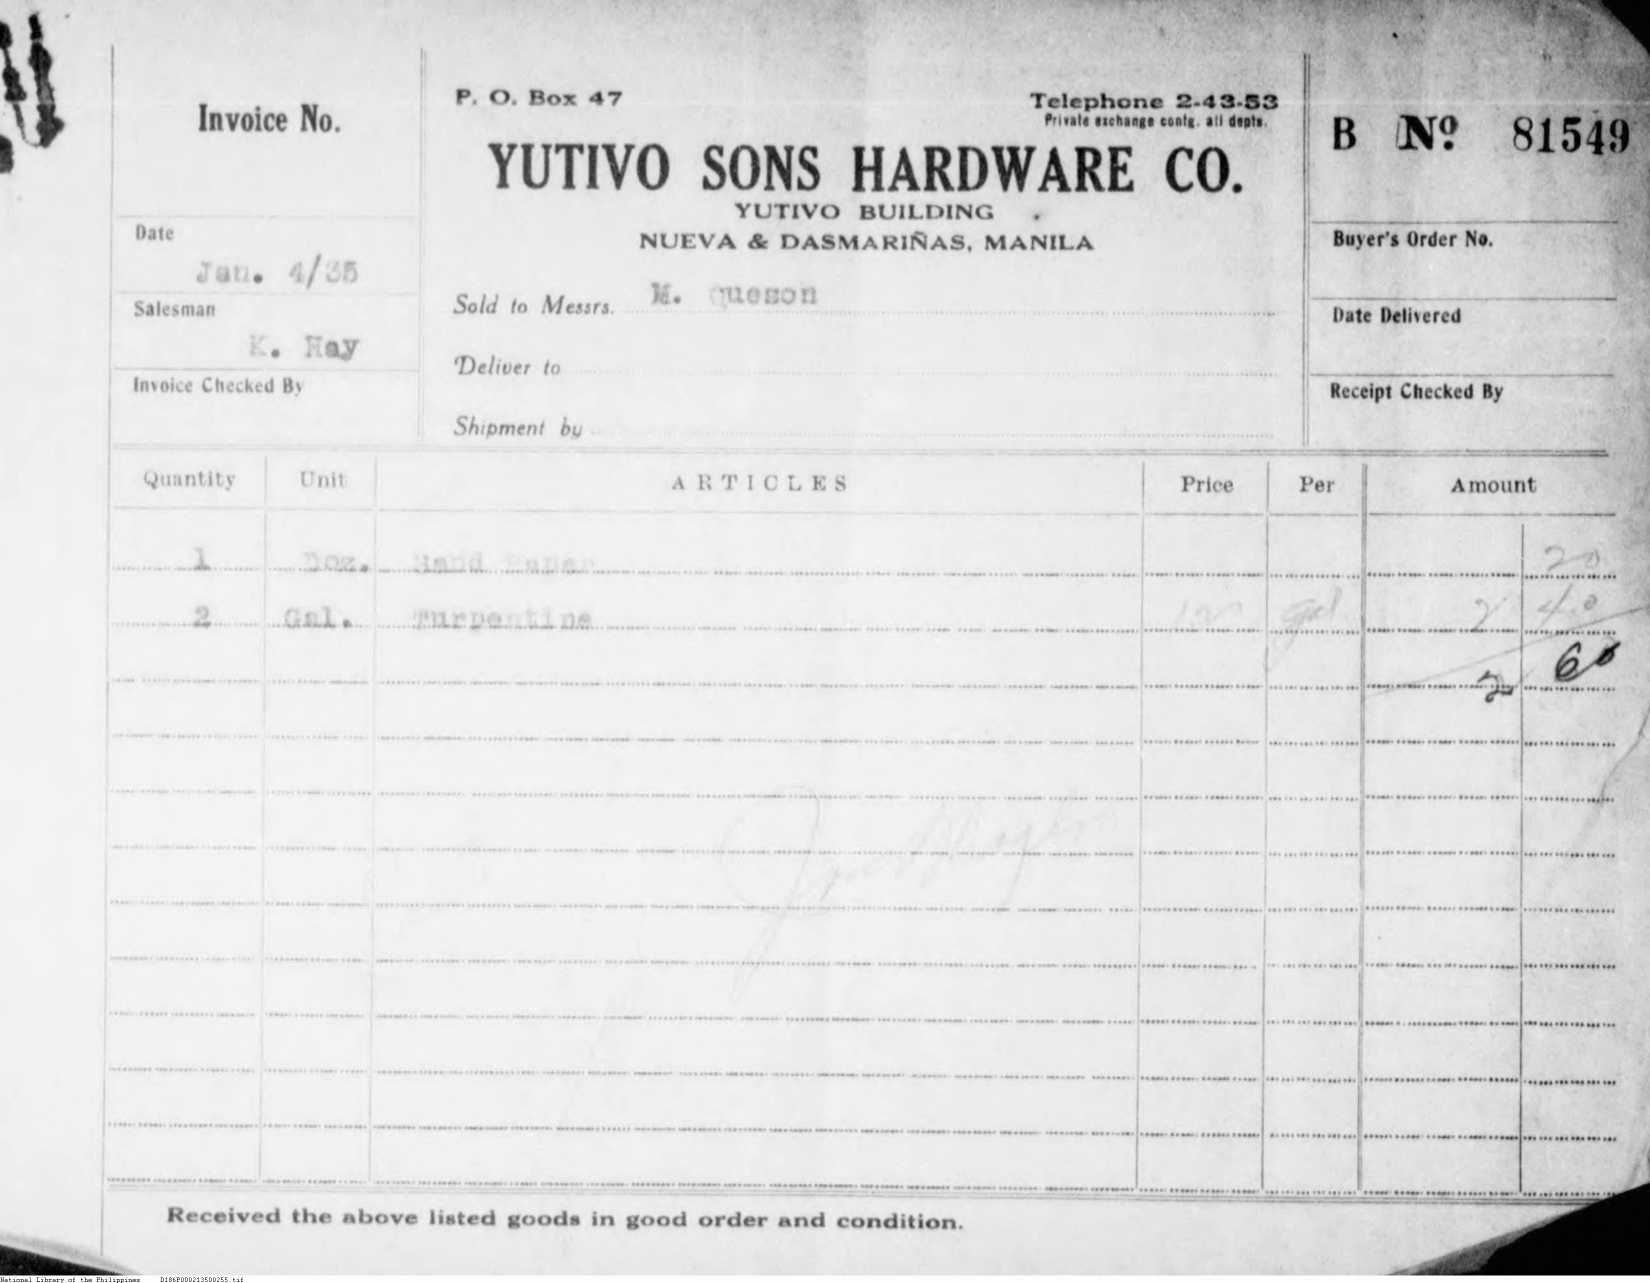 P. O. Box 47
Telephone 2-43-53
Private exchange contg. all depts.
Invoice No.
YUTIVO SONS HARDWARE CO.
YUTIVO BUILDING
NUEVA & DASMARIÑAS, MANILA
B Nº 81549
Date
Jan. 4/35
Salesman
K. Hay
Invoice Checked By
Sold to Messrs. M. queson
Deliver to
Shipment by
Buyer's Order No.
Date Delivered
Receipt Checked By
Quantity Unit ARTICLES Price Per Amount
1 Doz. Sand Paper 20
2 Gal. Turpentine gal 2 40
2 60
Received the above listed goods in good order and condition.
National Library of the Philippines D186P000213500255.tif